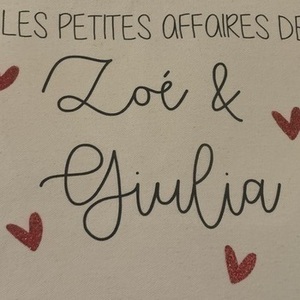 LES PETITES AFFAIRES DE
Zoé &
Giulia